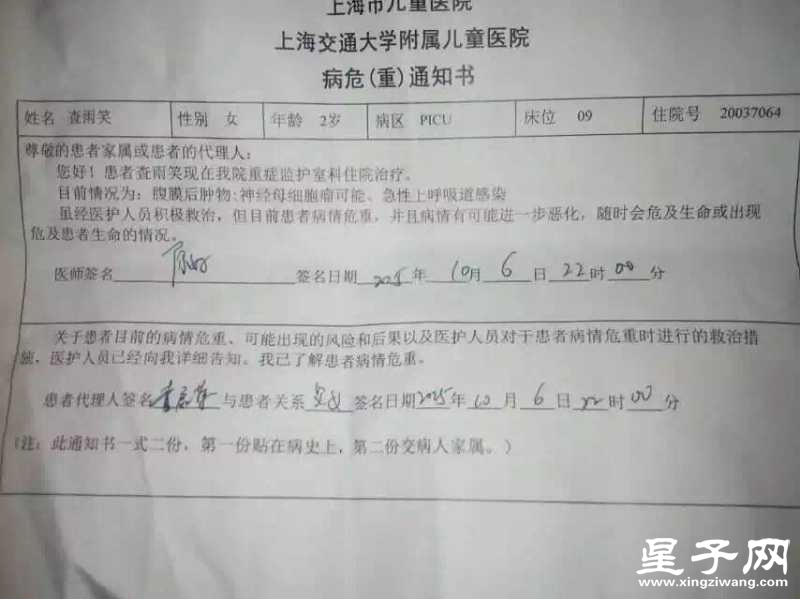 上海市儿童医院
上海交通大学附属儿童医院
病危(重)通知书
姓名 查雨笑 性别 女 年龄 2岁 病区 PICU 床位 09 住院号 20037064
尊敬的患者家属或患者的代理人：
您好！患者查雨笑现在我院重症监护室科住院治疗。
目前情况为：腹膜后肿物:神经母细胞瘤可能、急性上呼吸道感染
虽经医护人员积极救治，但目前患者病情危重，并且病情有可能进一步恶化，随时会危及生命或出现
危及患者生命的情况。
医师签名 签名日期 2025 年 10 月 6 日 22 时 00 分
关于患者目前的病情危重、可能出现的风险和后果以及医护人员对于患者病情危重时进行的救治措
施，医护人员已经向我详细告知。我已了解患者病情危重。
患者代理人签名 与患者关系 签名日期 2025 年 10 月 6 日 22 时 00 分
(注：此通知书一式二份，第一份贴在病史上，第二份交病人家属。)
星子网
www.xingziwang.com